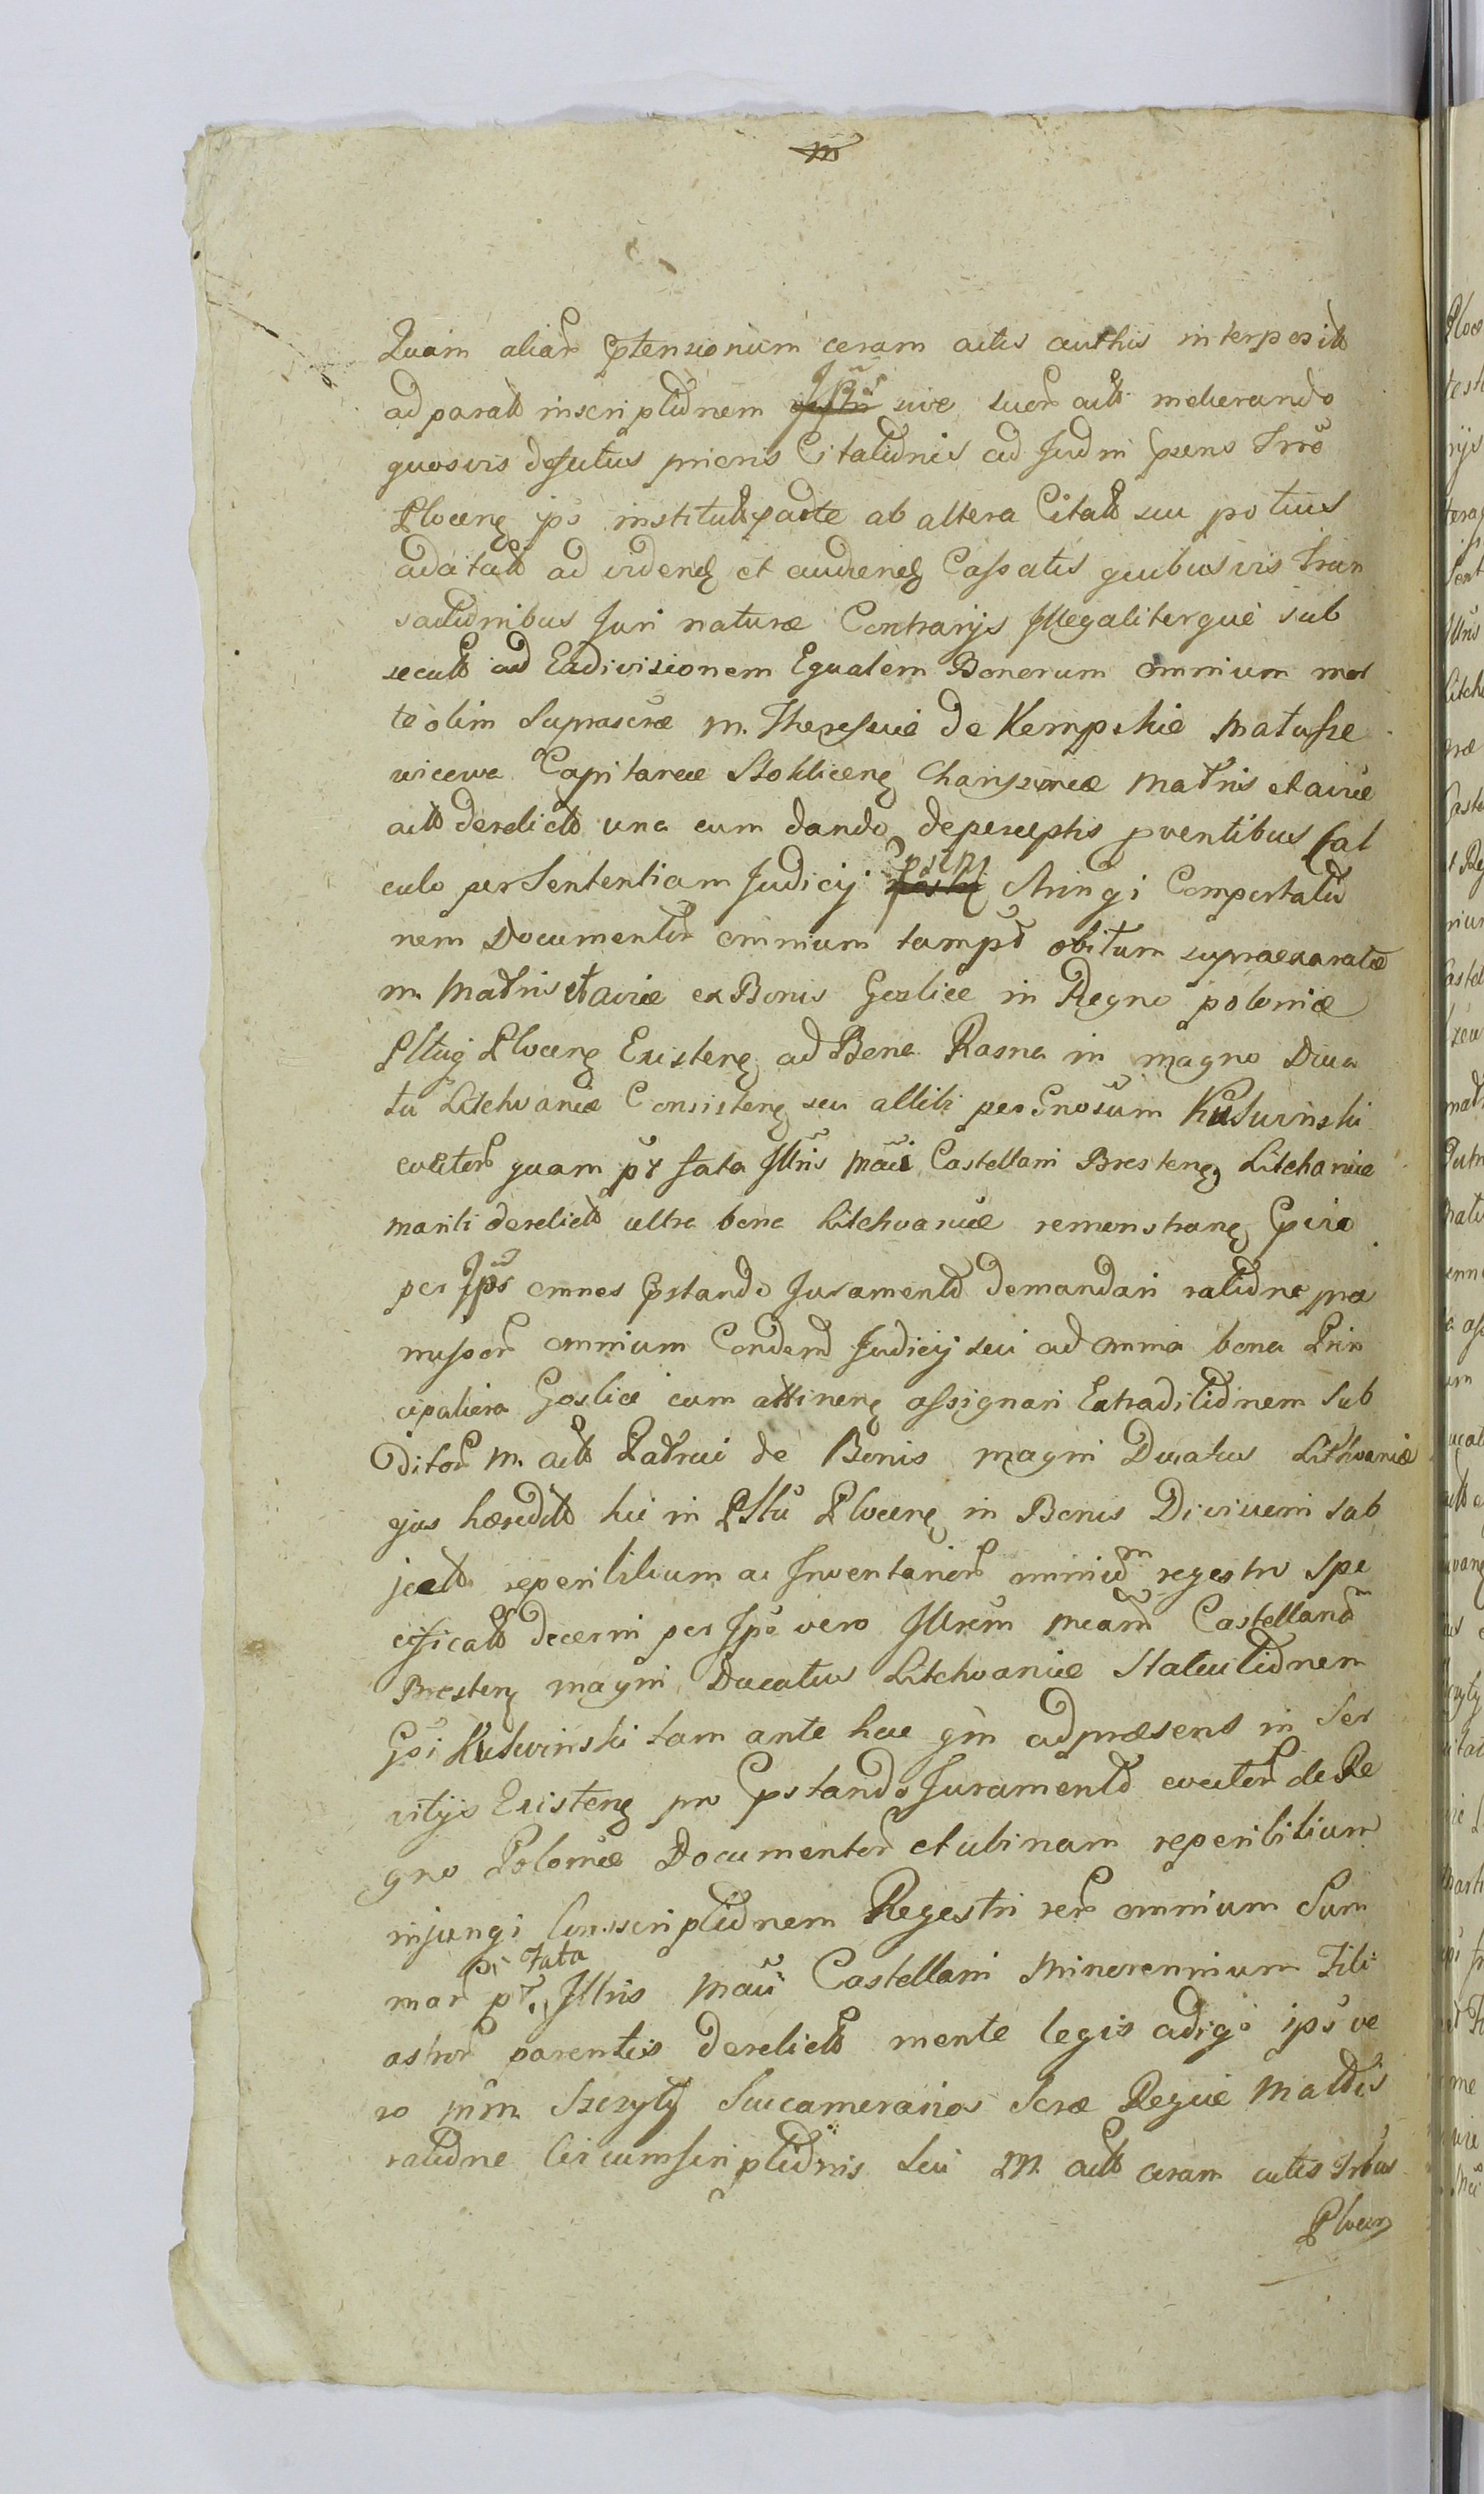 Quam aliar ptensionum coram actis authis interposit
ad parat inscriptionem Ipsius sive suor act meliorando
quosvis defectus prioris Citationis ad Judm psens Trre
Plocen ipo institut parte ab altera Citat seu potius
adcitat ad viden et audien Cassatis quibusvis Tran
sactionibus Juri naturæ Contrarijs Illegaliterque sub
secut ad Exdivisionem Equalem Bonorum omnium mor
te olim Suprascræ m. Theressiæ de Kempskie Matusze
wicowa Capitaneæ Stokliscen Charissimæ Matris et aviæ
act derelict una cum dando de perceptis pventibus Cal
culo per Sententiam Judicij psen Stringi Comportatio
nem Documentor omnium tam post obitum supraexaratæ
m. Matris et aviæ ex Bonis Goslice in Regno poloniæ
Pltu Plocen Existen ad Bona Rasna in magno Duca
tu Litchvaniæ Consisten seu alibi per Gnosum Kulwinski
evector quam pt fata Illris Maci Castellani Bresten, Litchaniæ
mariti derelict ultra bona Litchvaniæ remonstran pvio
per Ipos omnes pstando Juramento demandari ratione præ
missor omnium Condem Judicij sui ad omnia bona Prin
cipaliora Goslice cum attinen assignari Extraditionem Sub
ditor M. act Patrui de Bonis magni Ducatus Lithvaniæ
ejus hæredit hic in Pltu Plocen in Bonis Diviveni sub
ject reperibilium ac Inventarior omnium regestro spe
cificat decerni per Ipo vero Illrem Mcam Castellano
Bresten magni Ducatus Litchvaniæ Statuitionem
Gsi Kulwinski tam ante hac qm ad præsens in Ser
vitijs Existen pro pstando Juramento evector de Re
gno Poloniæ Documentor et ubinam reperibilium
injungi Conscriptionem Regestri rer omnium Sum
mar pt fata Illris Maci Castellani Minorennium Fili
astror parentis derelict mente legis adigi ipo ve
ro mm. Szczyty Succamerarios Scræ Regiæ Mattis
ratione Circumscriptionis sui M. act coram actis Trbus
Plocen